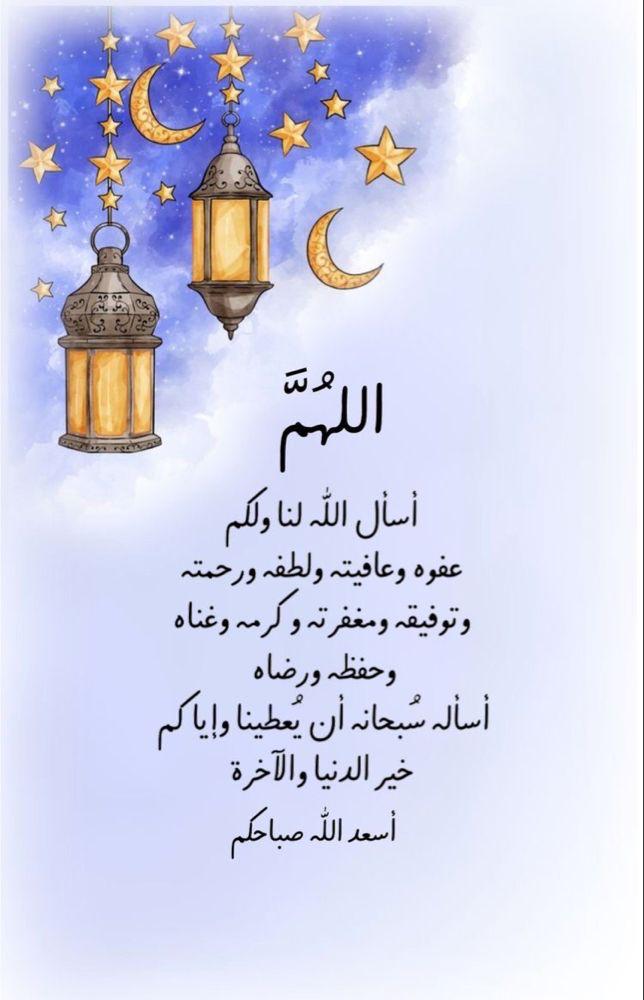 اللهُمَّ
أسأل الله لنا ولكم
عفوه وعافيته ولطفه ورحمته
وتوفيقه ومغفرته وكرمه وغناه
وحفظه ورضاه
أسأله سُبحانه أن يُعطينا وإياكم
خير الدنيا والآخرة
أسعد الله صباحكم